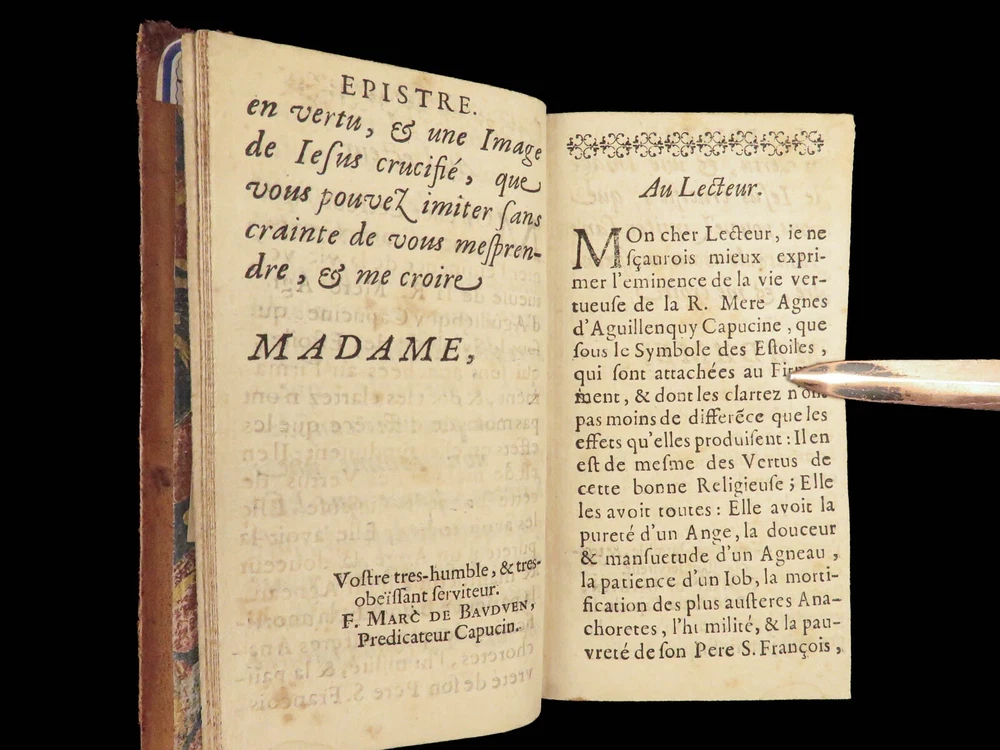 EPISTRE.
en vertu, & une Image
de Ieſus crucifié, que
vous pouvez imiter ſans
crainte de vous meſpren-
dre, & me croire
MADAME,
Voſtre tres-humble, & tres-
obeïſſant ſerviteur.
F. MARC DE BAVDVEN,
Predicateur Capucin.
Au Lecteur.
MOn cher Lecteur, ie ne
ſçaurois mieux expri-
mer l'eminence de la vie ver-
tueuſe de la R. Mere Agnes
d'Aguillenquy Capucine, que
ſous le Symbole des Eſtoiles,
qui ſont attachées au
ment, & dont les clartez n'ont
pas moins de differẽce que les
effets qu'elles produiſent: Il en
eſt de meſme des Vertus de
cette bonne Religieuſe; Elle
les avoit toutes: Elle avoit la
pureté d'un Ange, la douceur
& manſuetude d'un Agneau,
la patience d'un Iob, la morti-
fication des plus auſteres Ana-
choretes, l'hu milité, & la pau-
vreté de ſon Pere S. François,